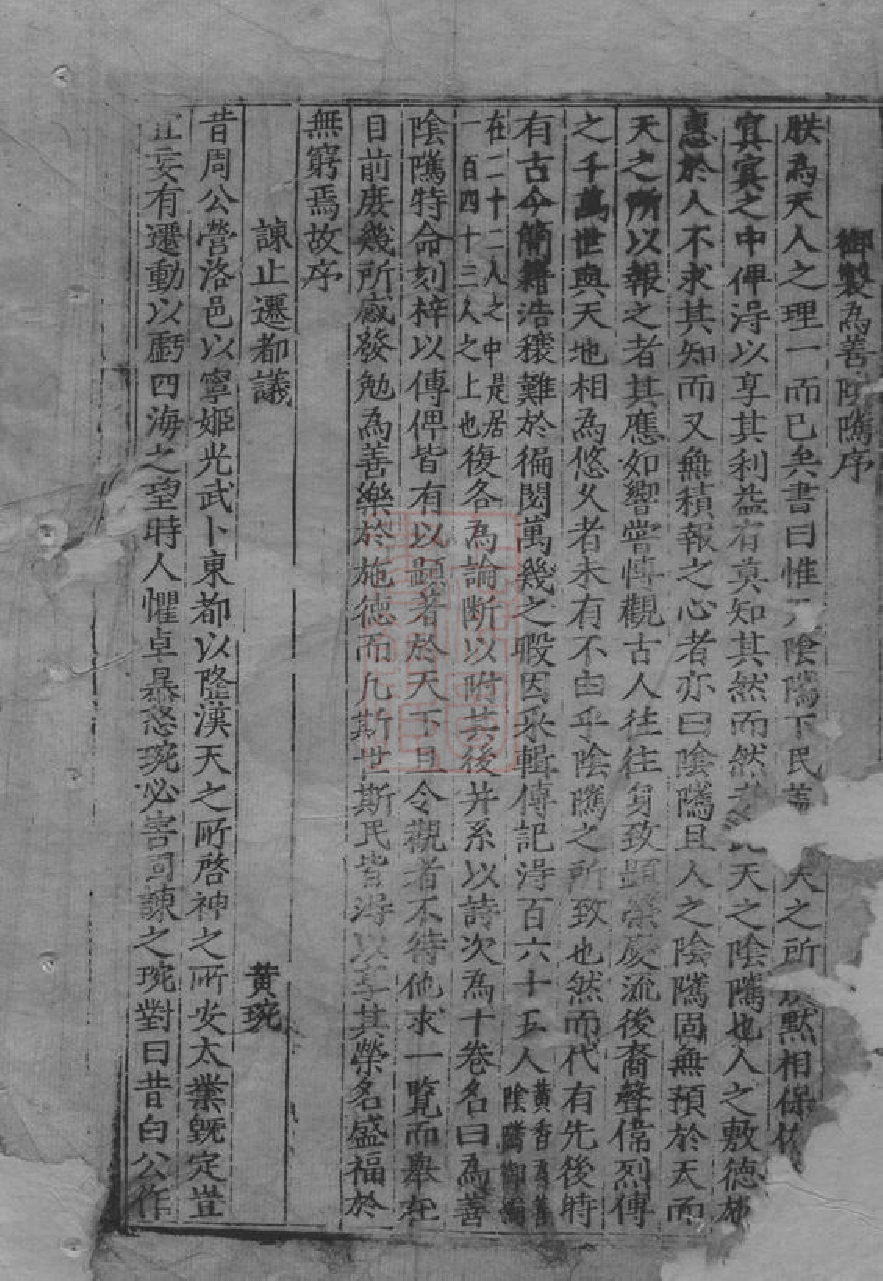 御製為善陰隲序
朕為天人之理一而已矣書曰惟天陰隲下民蓋天之所以默相保佑
冥冥之中俾得以享其利益有莫知其然而然者此天之陰隲也人之敷德施
惠於人不求其知而又無積報之心者亦曰陰隲且人之陰隲固無預於天而
天之所以報之者其應如響嘗博觀古人往往身致顯榮慶流後裔聲偉烈傳
之千萬世與天地相為悠久者未有不由乎陰隲之所致也然而代有先後時
有古今簡籍浩穰難於徧閱萬幾之暇因采輯傳記得百六十五人黃香為善陰隲御編
在二十二人之中是居一百四十三人之上也復各為論斷以附其後并系以詩次為十卷名曰為善
陰隲特命刻梓以傳俾皆有以顯著於天下且令觀者不待他求一覽而舉在
目前庶幾所感發勉為善樂於施德而凡斯世斯民皆得以享其榮名盛福於
無窮焉故序
諫止遷都議 黃琬
昔周公營洛邑以寧姬光武卜東都以隆漢天之所啓神之所安太業既定豈
宜妄有遷動以虧四海之望時人懼卓暴怒琬必害同諫之琬對曰昔白公作